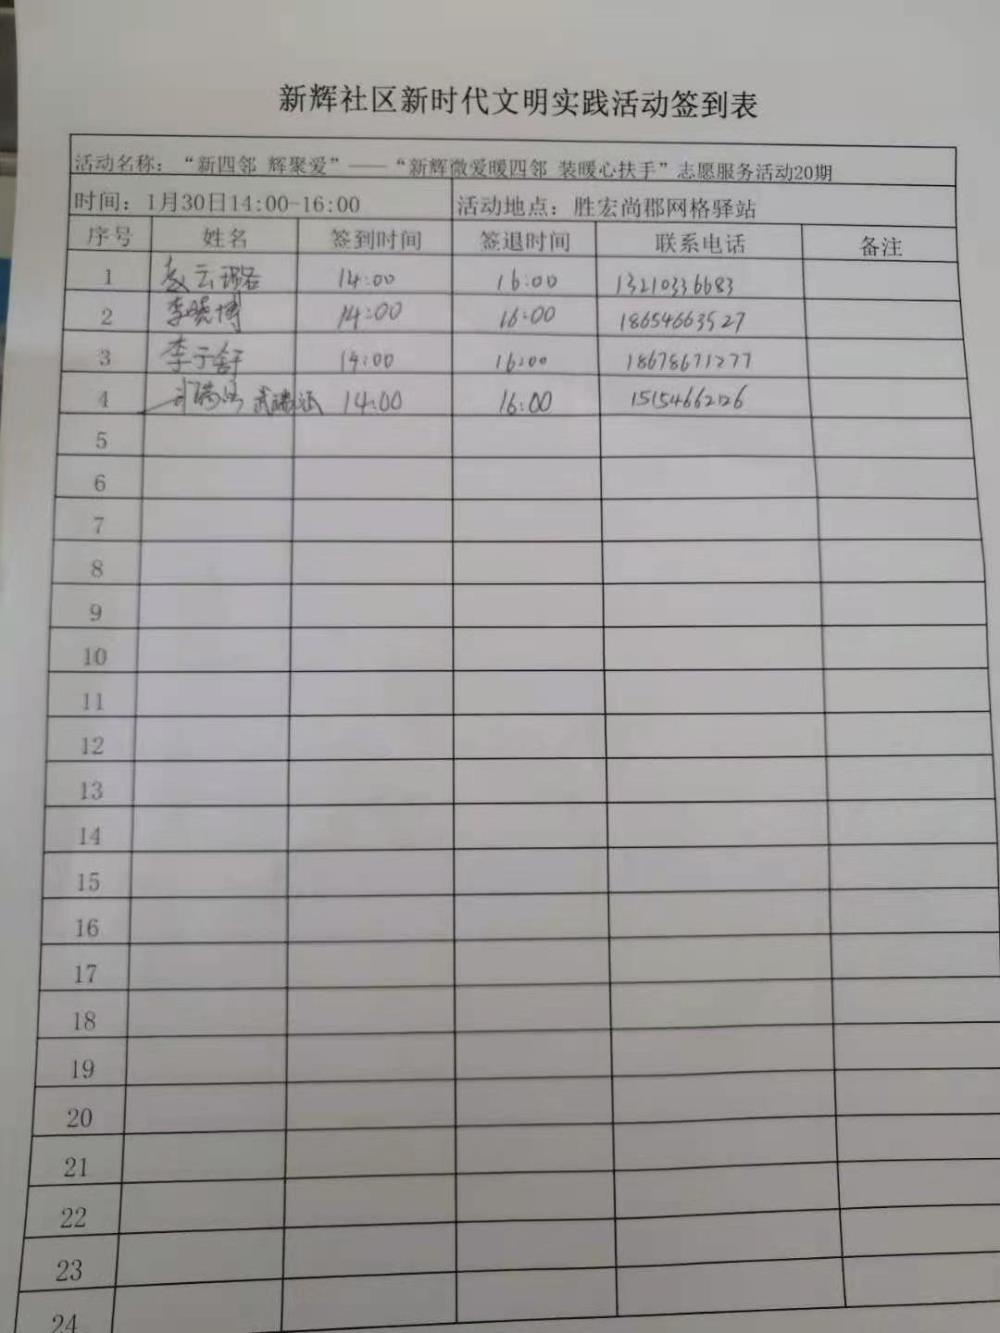 新辉社区新时代文明实践活动签到表
活动名称：“新四邻 辉聚爱”——“新辉微爱暖四邻 装暖心扶手”志愿服务活动20期
时间：1月30日14:00-16:00 活动地点：胜宏尚郡网格驿站
序号 姓名 签到时间 签退时间 联系电话 备注
1 赵云璐 14:00 16:00 13210336683
2 李晓博 14:00 16:00 18654663527
3 李于舒 14:00 16:00 18678671277
4 14:00 16:00 15154662126
5
6
7
8
9
10
11
12
13
14
15
16
17
18
19
20
21
22
23
24